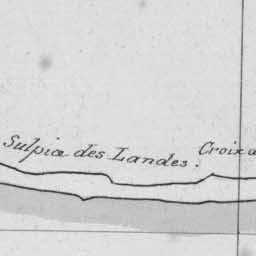 Sulpiæ des Landes.
Croix